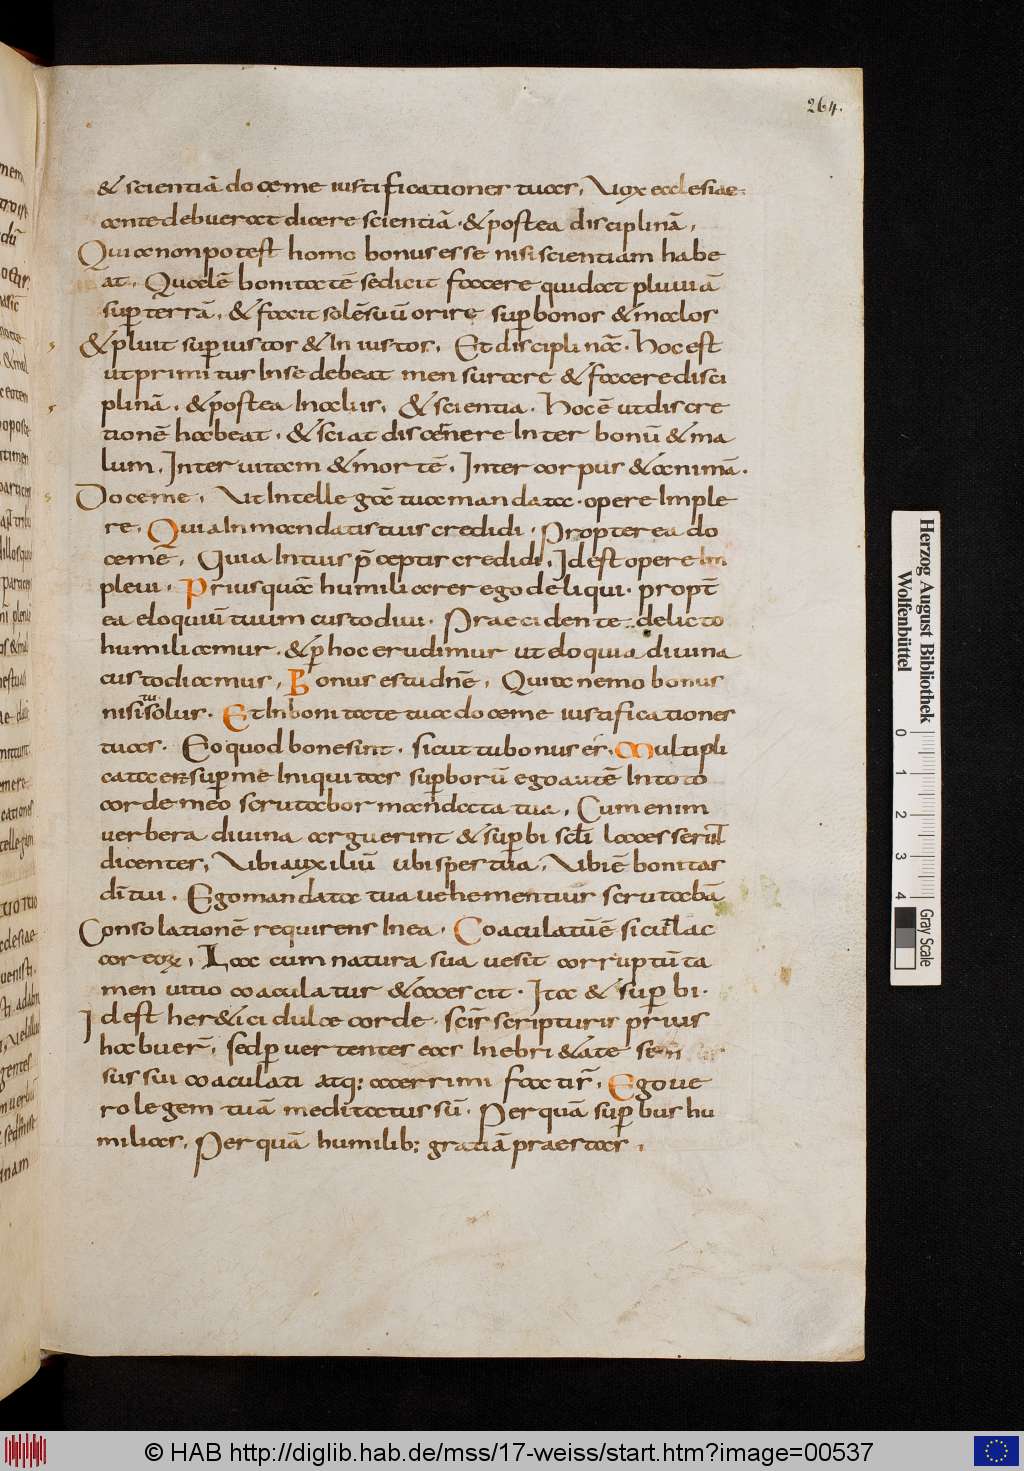 264.
& scientiā doceme iustificationes tuas, Vox ecclesiae
ante debuerat dicere scientiā · & postea disciplinā,
Quia non potest homo bonus esse nisi scientiam habe
at. Qualē bonitatē se dicit facere qui dat pluuiā
sup terrā, & facit solē suū orire super bonos & malos
& pluit super iustos & In iustos, Et disciplinā · Hoc est
ut primitus In se debeat mensurare & facere disci
plinā, & postea In alius, & scientia · Hoc ē ut discre
tionē habeat, & sciat discernere Inter bonū & ma
lum, Inter uitam & mortē, Inter corpus & animā.
Doceme, Vt Intellegā tua mandata · opere Imple
re, Quia In mandatis tuis credidi, Propterea do
cemē, Quia In tuis p̄ceptis credidi, Id est opere Im
pleui, Priusquā humiliarer ego deliqui, propt̄
ea eloquiū tuum custodiui, Praecidente delicto
humiliamur, & p̄ hoc erudimur ut eloquia diuina
custodiamus, Bonus es tu dn̄e, Quia nemo bonus
tu
nisi solus, Et In bonitate tua doceme iustificationes
tuas, Eo quod bone sint, sicut tu bonus es, Multipli
cata est super me Iniquitas superborū ego autē In toto
corde meo scrutabor mandata tua, Cum enim
uerbera diuina arguerint & superbi scd̄i laces seruī
dicentes, Vbi auxiliū ubi spes tua, Vbi ē bonitas
dī tui, Ego mandata tua uehementius scrutabā
Consolationē requirens In ea, Coaculatū ē sicut lac
cor eorx, Lac cum natura sua uesit corruptū ta
men uitio coaculatur & acescit, Ita & superbi.
Id est her&ici dulce corde, scīs scripturis prius
habuer̄, sed puertentes eas In ebri&ate sen
sus sui coaculati atq; acerrimi facti r̄, Ego ue
ro legem tuā meditatus sū, Per quā superbus hu
milias, Per quā humilib; gratiā praestas,
Herzog August Bibliothek
Wolfenbüttel
0 1 2 3 4
Gray Scale
© HAB http://diglib.hab.de/mss/17-weiss/start.htm?image=00537